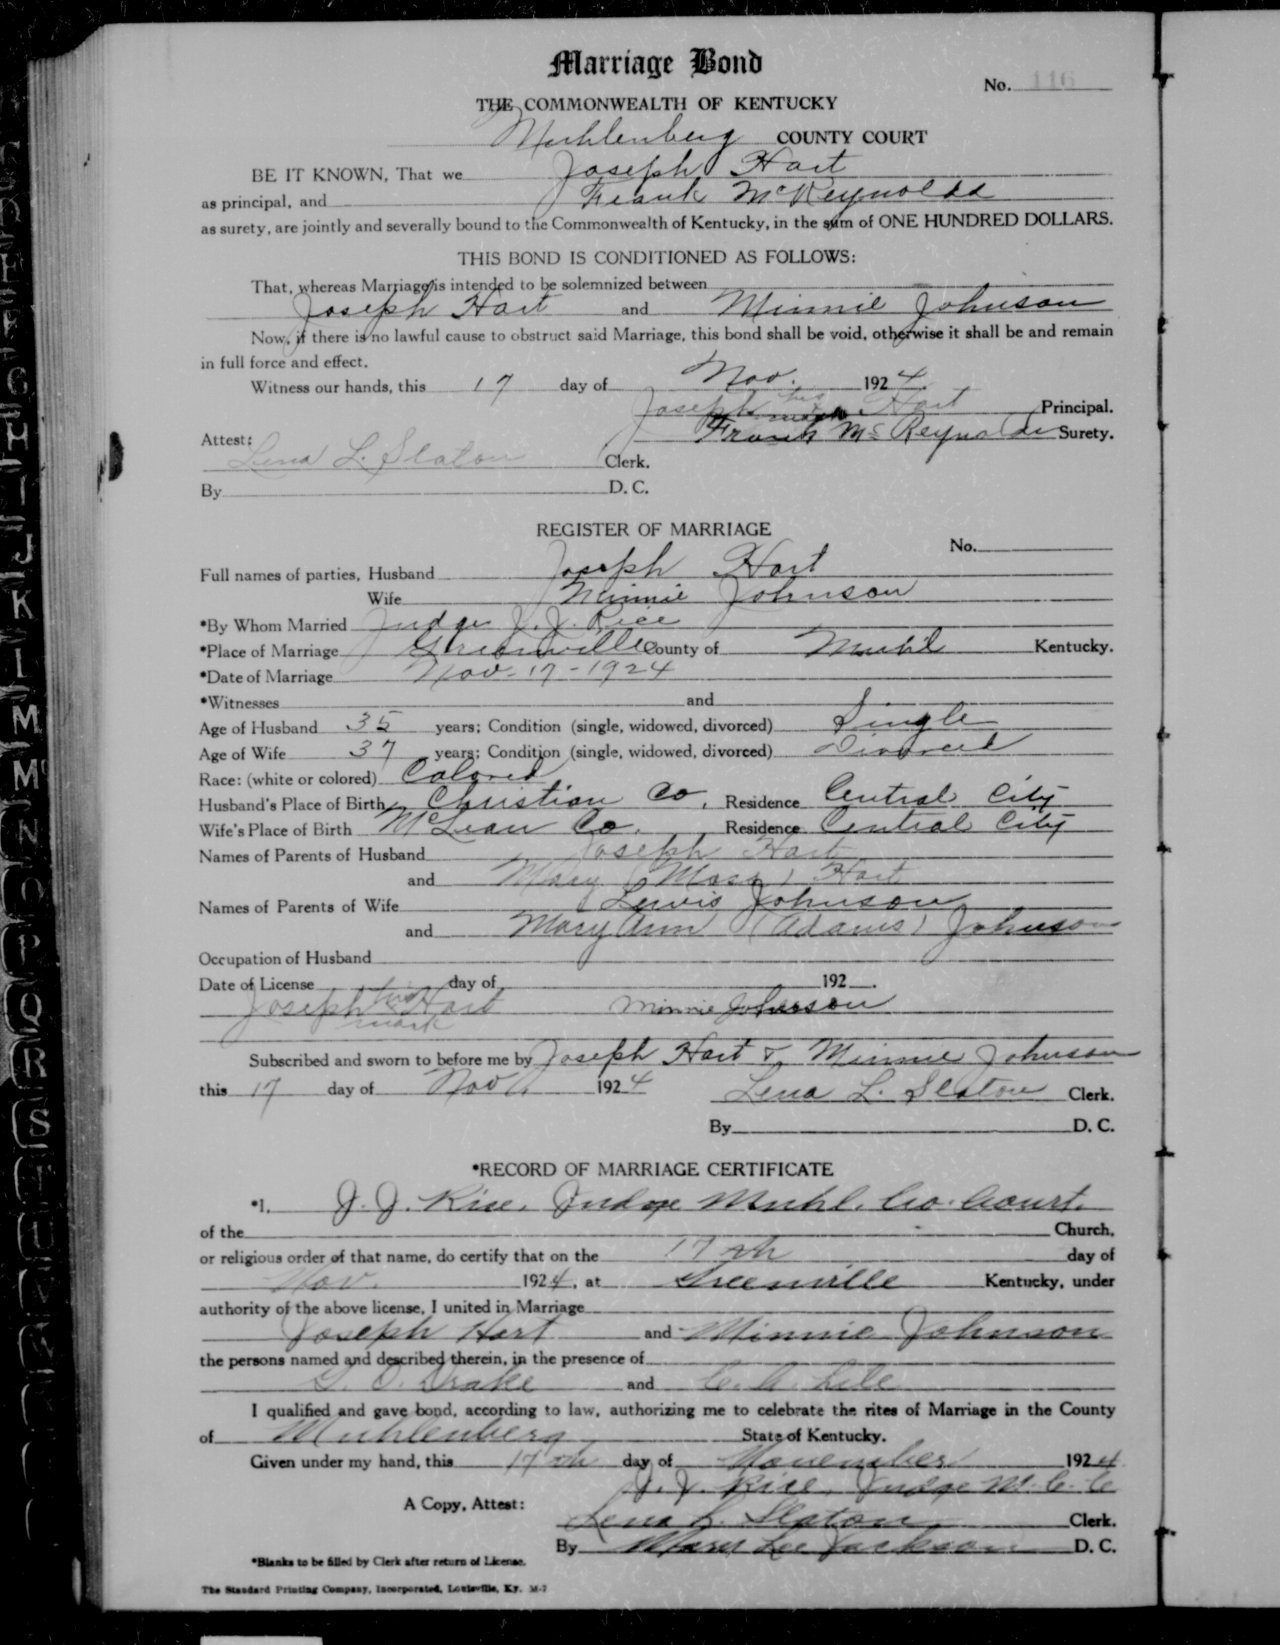 Marriage Bond
No. 116
THE COMMONWEALTH OF KENTUCKY
Muhlenberg COUNTY COURT
BE IT KNOWN, That we Joseph Hart
as principal, and Frank McReynolds
as surety, are jointly and severally bound to the Commonwealth of Kentucky, in the sum of ONE HUNDRED DOLLARS.
THIS BOND IS CONDITIONED AS FOLLOWS:
That, whereas Marriage is intended to be solemnized between
Joseph Hart and Minnie Johnson
Now, if there is no lawful cause to obstruct said Marriage, this bond shall be void, otherwise it shall be and remain
in full force and effect.
Witness our hands, this 17 day of Nov. 1924
Joseph his mark Hart Principal.
Frank McReynolds Surety.
Attest:
Lena L. Slaton Clerk.
By D. C.
REGISTER OF MARRIAGE
No.
Full names of parties, Husband Joseph Hart
Wife Minnie Johnson
*By Whom Married Judge J. J. Rice
*Place of Marriage Greenville County of Muhl Kentucky.
*Date of Marriage Nov-17-1924
*Witnesses and
Age of Husband 35 years; Condition (single, widowed, divorced) Single
Age of Wife 37 years; Condition (single, widowed, divorced) Divorced
Race: (white or colored) Colored
Husband's Place of Birth Christian Co. Residence Central City
Wife's Place of Birth McLean Co. Residence Central City
Names of Parents of Husband Joseph Hart
and Mary (Moss) Hart
Names of Parents of Wife Lewis Johnson
and Mary Ann (Adams) Johnson
Occupation of Husband
Date of License day of 192 .
Joseph his mark Hart Minnie Johnson
Subscribed and sworn to before me by Joseph Hart & Minnie Johnson
this 17 day of Nov. 1924
Lena L. Slaton Clerk.
By D. C.
*RECORD OF MARRIAGE CERTIFICATE
*I, J. J. Rice, Judge Muhl. Co. Court.
of the Church,
or religious order of that name, do certify that on the 17th day of
Nov. 1924, at Greenville Kentucky, under
authority of the above license, I united in Marriage
Joseph Hart and Minnie Johnson
the persons named and described therein, in the presence of
G. O. Drake and C. A. Lile
I qualified and gave bond, according to law, authorizing me to celebrate the rites of Marriage in the County
of Muhlenberg State of Kentucky.
Given under my hand, this 17th day of November 1924
J. J. Rice, Judge M. C. C
A Copy, Attest:
Lena L. Slaton Clerk.
By Lee Jackson D. C.
*Blanks to be filled by Clerk after return of License.
The Standard Printing Company, Incorporated, Louisville, Ky. M-7